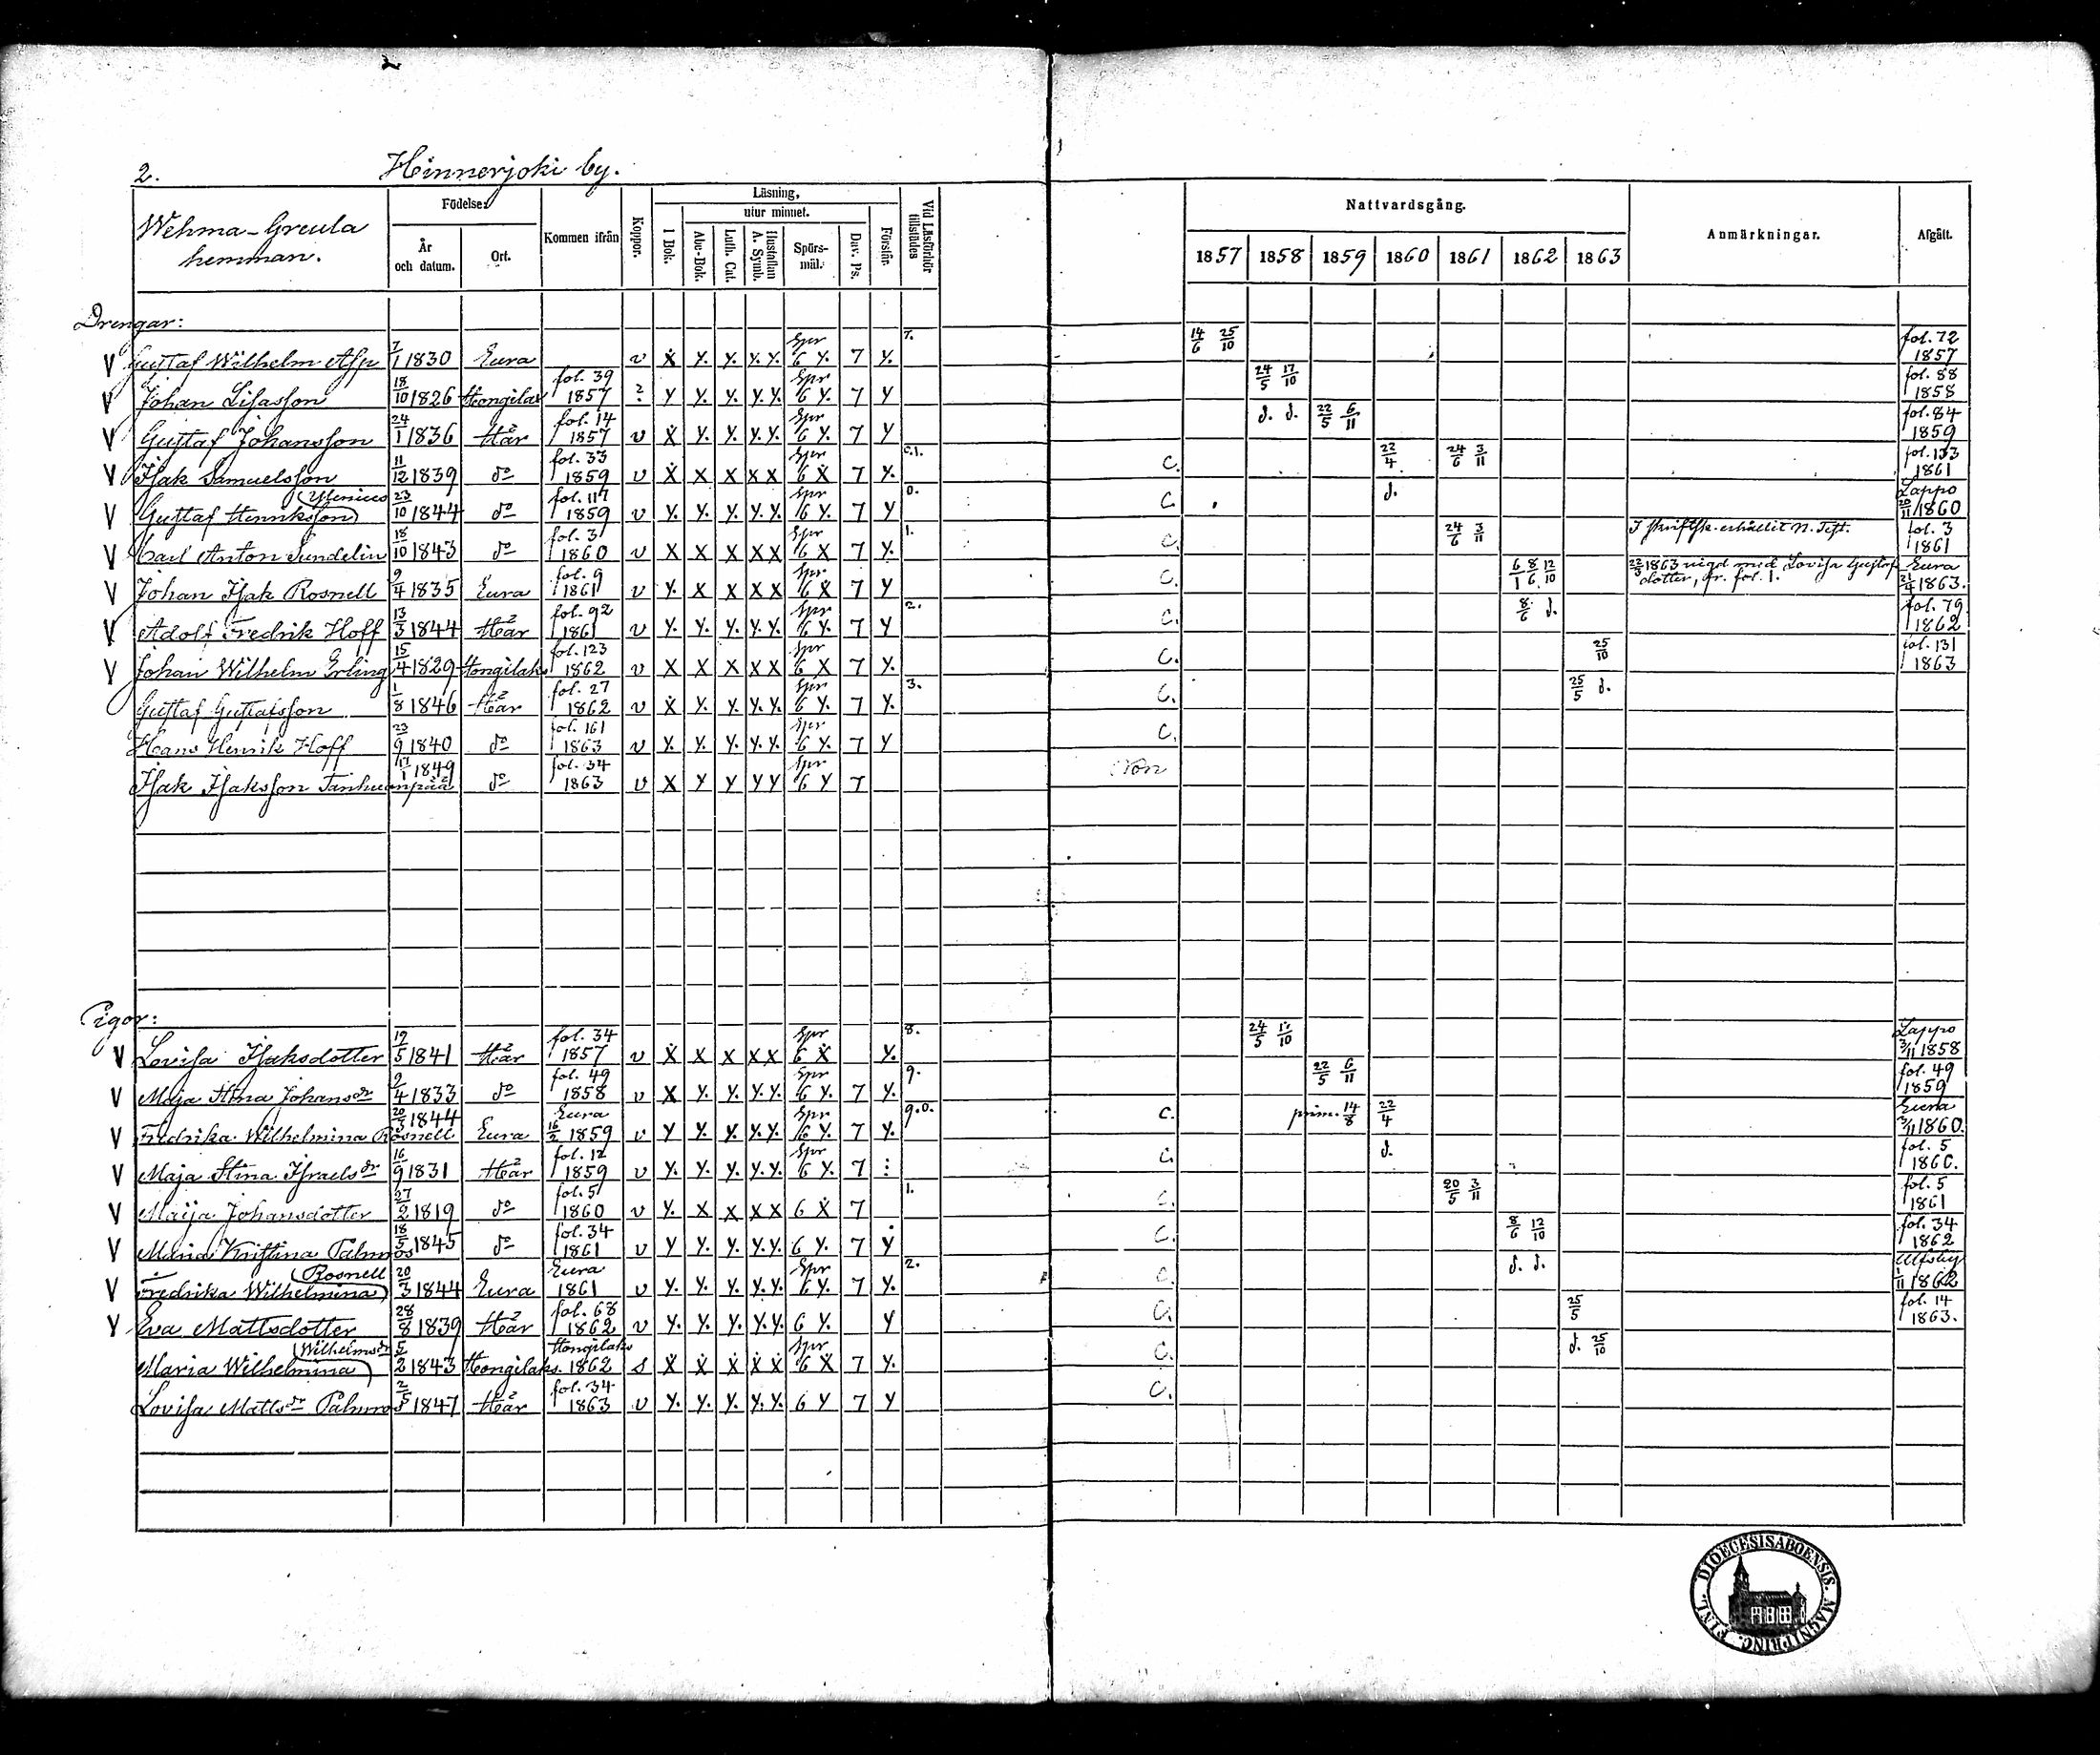 2. Hinnerjoki by.
Wehma-Greula hemman.
Födelse: År och datum. Ort. Kommen ifrån Koppor. Läsning, I Bok. utur minnet. Abc-Bok. Luth. Cat. Hustaflan A. Symb. Spörs-mål. Dav. Ps. Förstår. Vid Läsförhör tillstädes Nattvardsgång. 1857 1858 1859 1860 1861 1862 1863 Anmärkningar. Afgått.
Drengar:
V Gustaf Wilhelm 7/1 1830 Eura v X y. y. y. y. Spr 6 y. 7 y. 7. 14/6 25/10 fol. 72 1857
V Johan Lisasson 18/10 1826 Hongilax fol. 39 1857 ? y y. y. y. y. Spr 6 y. 7 y 24/5 17/10 fol. 88 1858
V Gustaf Johansson 24/1 1836 Här fol. 14 1857 v X y. y. y. y. Spr 6 y. 7 y d. d. 22/5 6/11 fol. 84 1859
V Isak Samuelsson 11/12 1839 do fol. 33 1859 v X X X X X Spr 6 X 7 y. c.1. C. 22/4 24/6 3/11 fol. 133 1861
V Gustaf Henriksson 23/10 1844 do fol. 117 1859 v y. y. y. y. y. Spr 6 y. 7 y 0. C. d. Lappo 20/11 1860
V Carl Anton Sundelin 18/10 1843 do fol. 3 1860 v X X X X X Spr 6 X 7 y. 1. C. 24/6 3/11 I skriftsk. erhållit N. Test. fol. 3 1861
V Johan Isak Rosnell 9/4 1835 Eura fol. 9 1861 v y. X X X X Spr 6 X 7 y C. 6/1 8/6 12/10 22/3 1863 vigd med Lovisa Gustafs dotter, fr. fol. 1. Eura 21/4 1863.
V Adolf Fredrik Hoff 13/3 1844 Här fol. 92 1861 v y. y. y. y. y. Spr 6 y. 7 y 2. C. 8/6 d. fol. 79 1862
V Johan Wilhelm Erling 15/4 1829 Hongilaks fol. 123 1862 v X X X X X Spr 6 X 7 y. C. 25/10 fol. 131 1863
Gustaf Gustafsson 1/8 1846 Här fol. 27 1862 v X y. y. y. y. Spr 6 y. 7 y. 3. C. 25/5 d.
Hans Henrik Hoff 23/9 1840 do fol. 161 1863 v y. y. y. y. y. Spr 6 y. 7 y C.
Isak Isaksson Tanhuanpää 17/1 1849 do fol. 34 1863 v X y y y y Spr 6 y 7 Non
Pigor:
V Lovisa Isaksdotter 19/5 1841 Här fol. 34 1857 v X X X X X Spr 6 X y. 8. 24/5 17/10 Lappo 3/11 1858
V Maja Stina Johansdr 2/4 1833 do fol. 49 1858 v X y. y. y. y. Spr 6 y. 7 y. 9. 22/5 6/11 fol. 49 1859
V Fredrika Wilhelmina Rosnell 20/3 1844 Eura Eura 16/2 1859 v y y. y. y. y. Spr 6 y. 7 y. 9.0. C. prim. 14/8 22/4 Eura 3/11 1860.
V Maja Stina Israelsdr 16/9 1831 Här fol. 12 1859 v y. y. y. y. y. Spr 6 y. 7 : C. d. fol. 5 1860.
V Maija Johansdotter 27/2 1819 do fol. 5 1860 v y. X X X X 6 X 7 1. C. 20/5 3/11 fol. 5 1861
V Maria Kristina Palmroos 18/5 1845 do fol. 34 1861 v y y. y. y. y. 6 y. 7 y C. 8/6 12/10 fol. 34 1862
V Fredrika Wilhelmina Rosnell 20/3 1844 Eura Eura 1861 v y. y. y. y. y. Spr 6 y. 7 y. 2. C. d. d. Ulfsby 1/11 1862
V Eva Mattsdotter 28/8 1839 Här fol. 68 1862 v y. y. y. y. y. 6 y. y C. 25/5 fol. 14 1863.
Maria Wilhelmina Wilhelmsdr 5/2 1843 Hongilaks. Hongilaks 1862 s X X X X X Spr 6 X 7 y. C. d. 25/10
Lovisa Mattsdr Palmroos 2/5 1847 Här fol. 34 1863 v y. y. y. y. y. 6 y 7 y C.
DIOECESIS ABOENSIS. MAGNI PRINC. FINL.